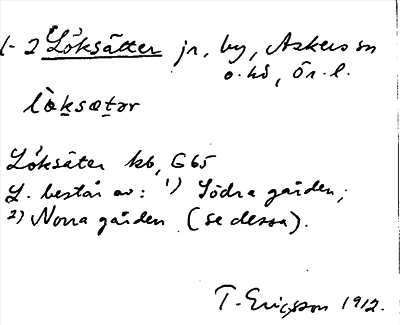 1-2 Löksätter jr, by, Askers sn
o. hd, Ör. l.
lò̤ksætər
Löksäter kb, G65
L. består av: 1) Södra gården;
2) Norra gården (se dessa).
T. Ericsson 1912.